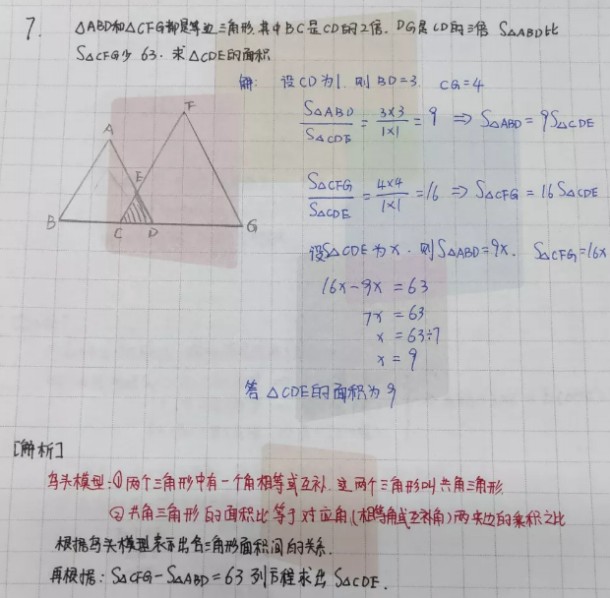 7. △ABD和△CFG都是等边三角形.其中BC是CD的2倍. DG是CD的三倍 S△ABD比
S△CFG少 63. 求△CDE的面积
解: 设CD为1. 则BD=3. CG=4
S△ABD/S△CDE = 3×3/1×1 = 9 ⇒ S△ABD = 9S△CDE
F
A
S△CFG/S△CDE = 4×4/1×1 = 16 ⇒ S△CFG = 16S△CDE
E
B C D G
设S△CDE为x. 则S△ABD=9x. S△CFG=16x
16x-9x = 63
7x = 63
x = 63÷7
x = 9
答 △CDE的面积为9
[解析]
鸟头模型:①两个三角形中有一个角相等或互补.这两个三角形叫共角三角形
②共角三角形的面积比等于对应角(相等角或互补角)两夹边的乘积之比
根据鸟头模型表示出各三角形面积间的关系.
再根据: S△CFG-S△ABD=63 列方程求出 S△CDE.